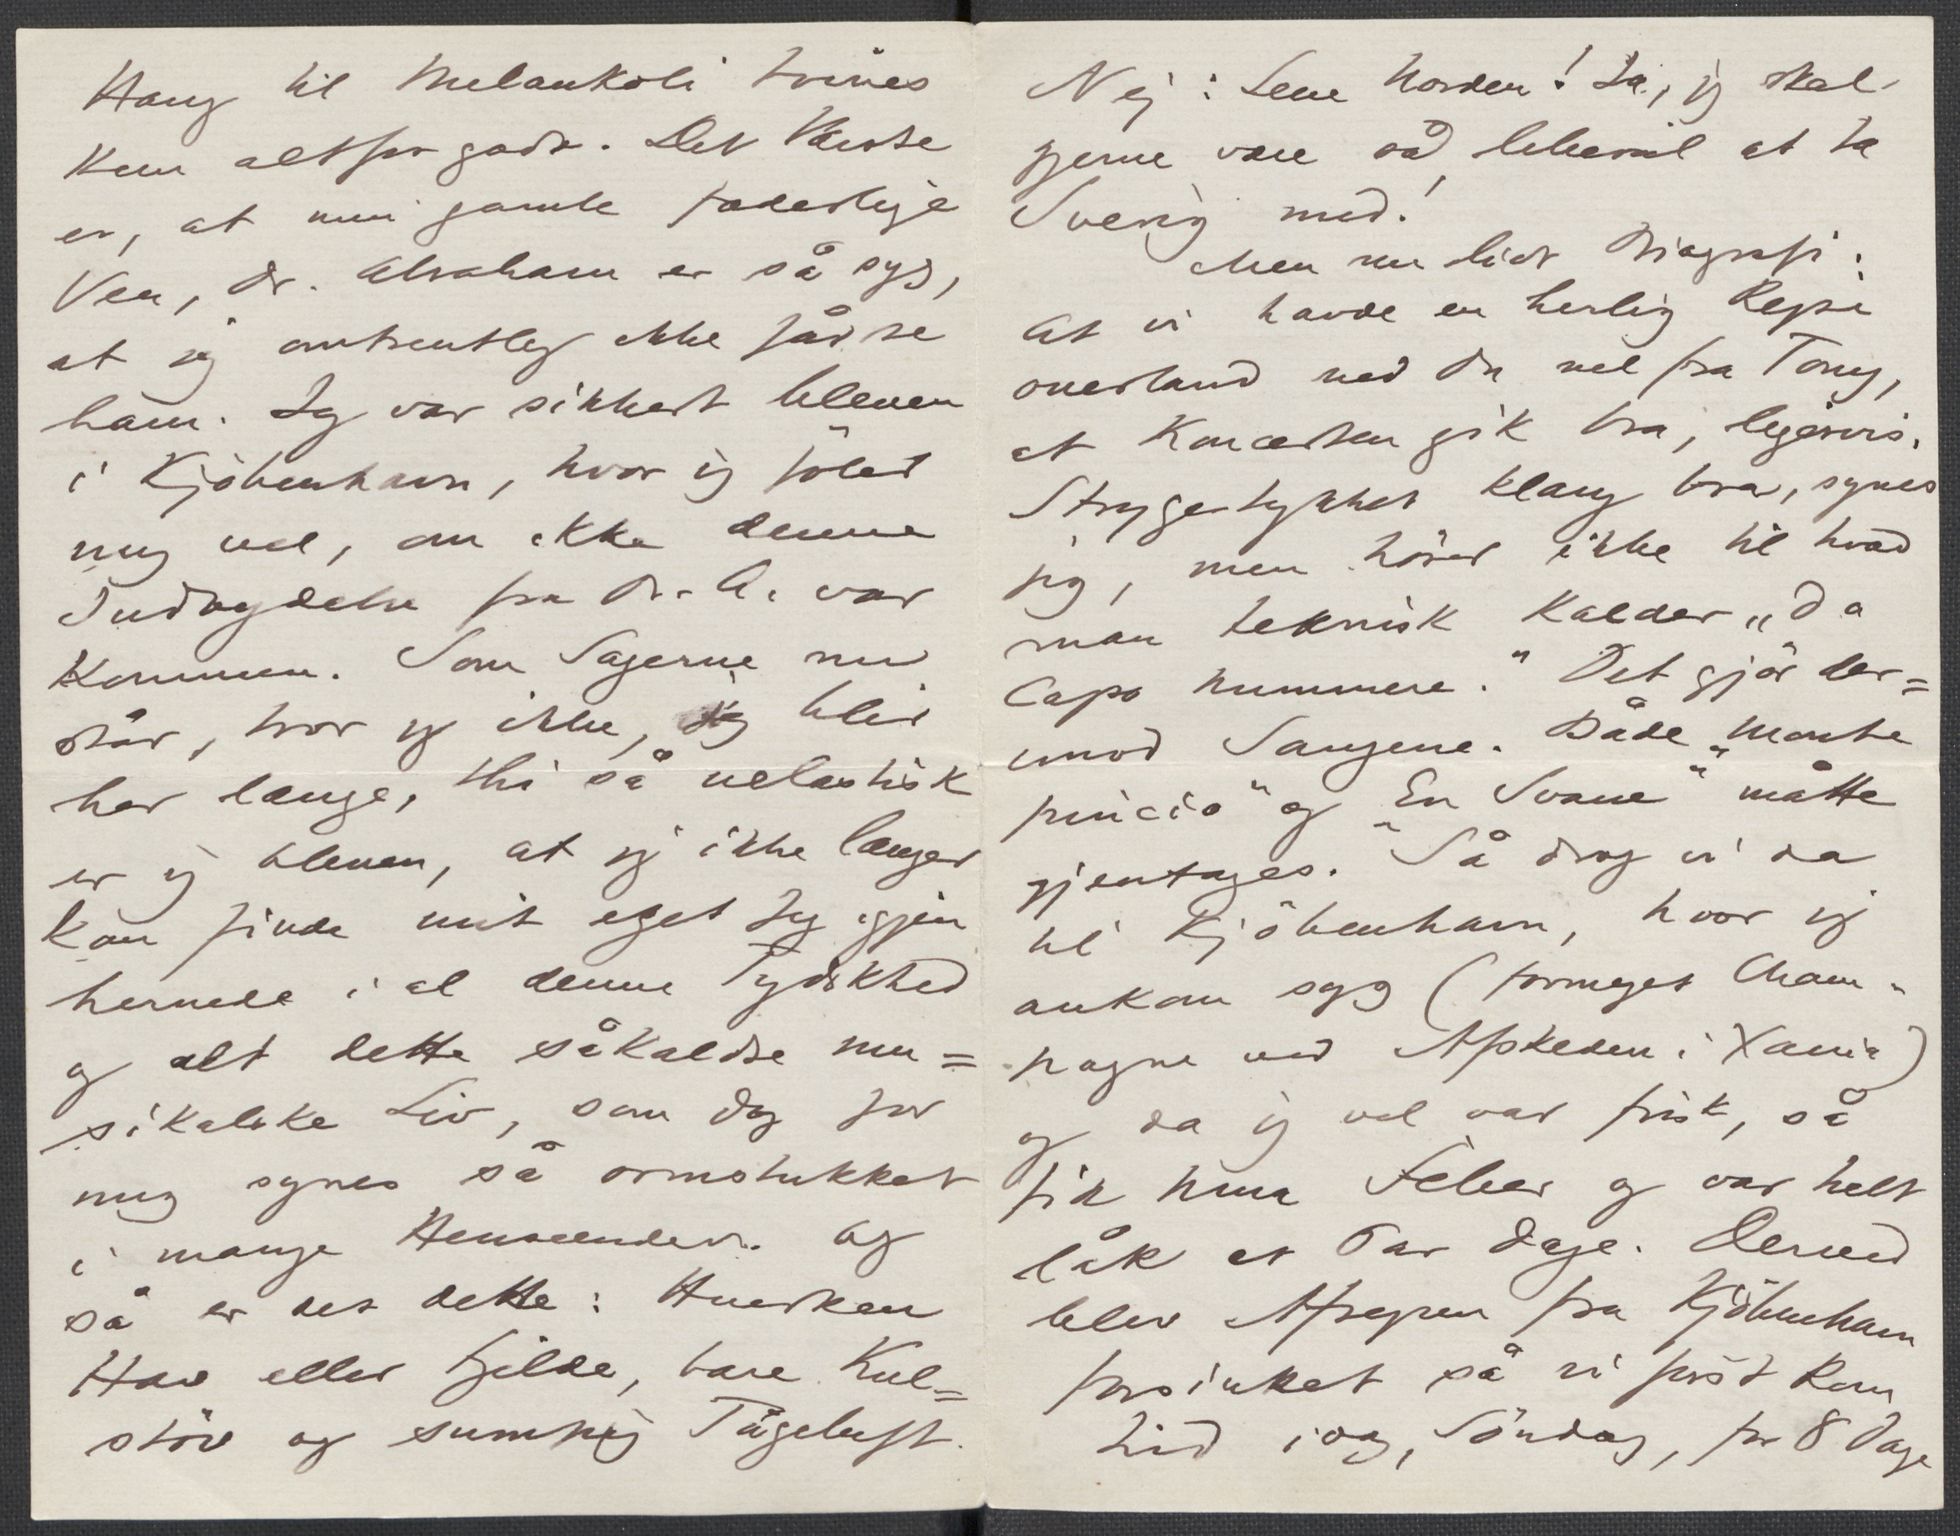 Hang til Melankoli trives
kun altfor godt. Det Værste
er, at min gamle faderlige
Ven, Dr. Abraham er så syg,
at jeg omtrentlig ikke får se
ham. Jeg var sikkert bleven
i Kjöbenhavn, hvor jeg fölte
mig vel, om ikke denne
Indbydelse fra Dr. A. var
kommen. Som Sagerne nu
står, tror jeg ikke, jeg blir
her længe, thi så uelastisk
er jeg bleven, at jeg ikke længer
kan finde mit eget Jeg igjen
hernede i al denne Tydskhed
og alt dette såkaldte mu=
sikalske Liv, som dog for
mig synes så ormstukket
i mange Henseender. Og
så er det dette: Hverken
Hav eller Fjelde, bare Kul=
störv og sumpig Tågeluft.
Nej: Leve Norden! Ja, jeg skal
gjerne være så liberal at ta
Sverig med!
Men nu lidt Biografi:
At vi havde en herlig Rejse
overland ved du vel fra Tony,
at Koncerten gik bra, ligeså.
Strygestykket klang bra, synes
jeg, men hörer ikke til hvad
man teknisk kalder „Da
capo nummere." Det gjör der=
imod Sangene. Både „Monte
pincio" og „En Svane" måtte
gjentages. Så drog vi da
til Kjöbenhavn, hvor jeg
ankom syg (formeget Cham-
pagne ved Afskeden i Xania)
og da jeg vel var frisk, så
fik Nina Feber og var helt
låk et Par Dage. Derved
blev Afrejsen fra Kjöbenhavn
forsinket så vi först kom
hid idag, Söndag, for 8 Dage